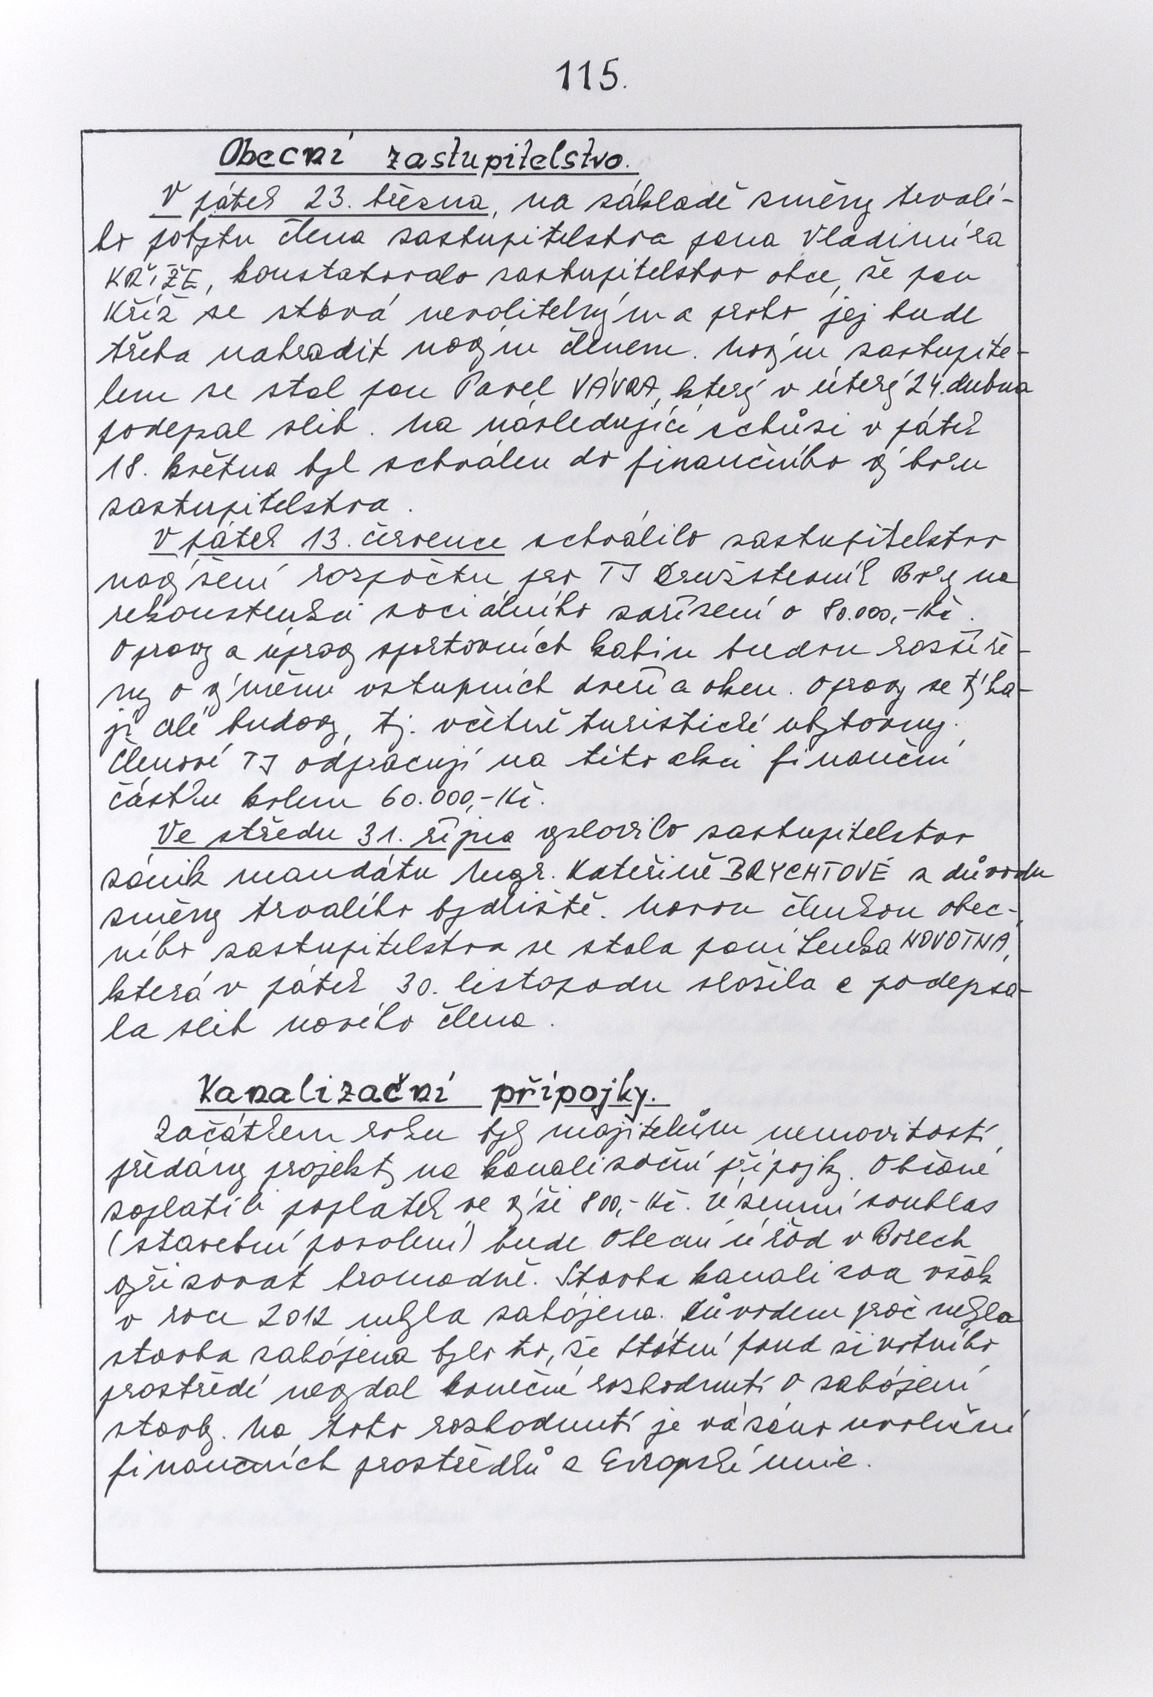 115.
Obecní zastupitelstvo.
V pátek 23. března, na základě změny trvalé-
ho pobytu člena zastupitelstva pana Vladimíra
KŘÍŽE, konstatovalo zastupitelstvo obce, že pan
Kříž se stává nevolitelným a proto jej bude
třeba nahradit novým členem. Novým zastupite-
lem se stal pan Pavel VÁVRA, který v úterý 24. dubna
podepsal slib. Na následující schůzi v pátek
18. května byl schválen do finančního výboru
zastupitelstva.
V pátek 13. července schválilo zastupitelstvo
navýšení rozpočtu pro TJ Družstevník Bory na
rekonstrukci sociálního zařízení o 80.000,-Kč.
Opravy a úpravy sportovních kabin budou rozšíře-
ny o výměnu vstupních dveří a oken. Opravy se týka-
jí celé budovy, tj. včetně turistické ubytovny.
Členové TJ odpracují na této akci finanční
částku kolem 60.000,-Kč.
Ve středu 31. října vyslovilo zastupitelstvo
zánik mandátu Mgr. Kateřině BRYCHTOVÉ z důvodu
změny trvalého bydliště. Novou členkou obec-
ního zastupitelstva se stala paní Lenka NOVOTNÁ,
která v pátek 30. listopadu složila a podepsa-
la slib nového člena.
Kanalizační přípojky.
Začátkem roku byly majitelům nemovitostí
předány projekty na kanalizační přípojky. Občané
zaplatili poplatek ve výši 800,-Kč. Územní souhlas
(stavební povolení) bude Obecní úřad v Borech
vyřizovat hromadně. Stavba kanalizace však
v roce 2012 nebyla zahájena. Důvodem proč nebyla
stavba zahájena bylo to, že Státní fond životního
prostředí nevydal konečné rozhodnutí o zahájení
stavby. Na toto rozhodnutí je vázáno uvolnění
finančních prostředků z Evropské unie.